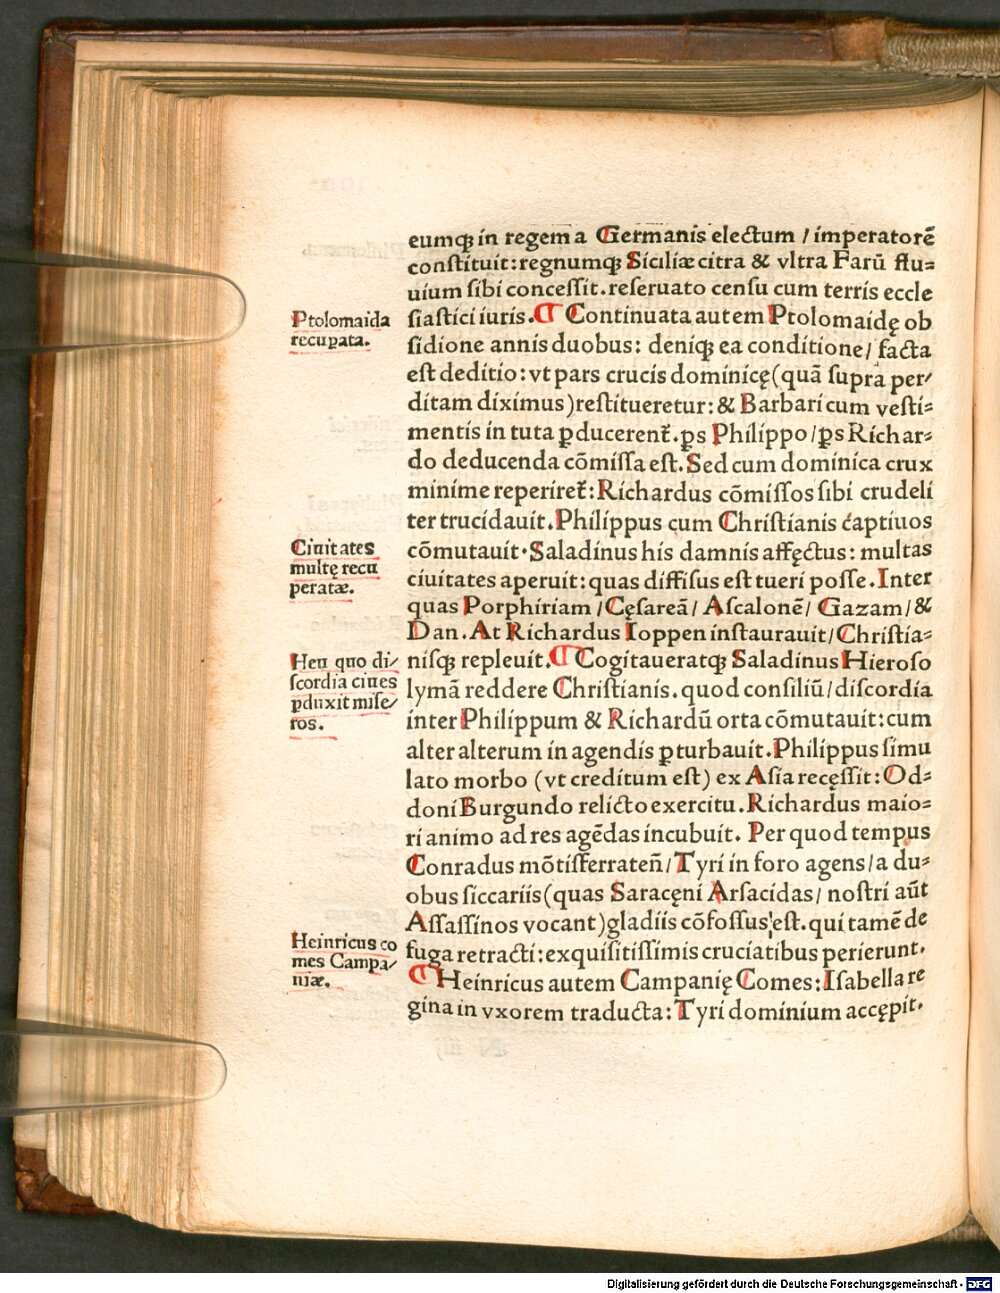 eumqꝫ in regem a Germanis electum / imperatorē
constituit: regnumqꝫ Siciliæ citra & vltra Farū flu⸗
uium sibi concessit. reseruato censu cum terris eccle
siastici iuris. ¶ Continuata autem Ptolomaidę ob
sidione annis duobus: deniqꝫ ea conditione / facta
est deditio: vt pars crucis dominicę (quā supra per/
ditam diximus) restitueretur: & Barbari cum vesti⸗
mentis in tuta ꝑducerent̄. ꝑs Philippo / ꝑs Richar⸗
do deducenda cōmissa est. Sed cum dominica crux
minime reperiret̄: Richardus cōmissos sibi crudeli
ter trucidauit. Philippus cum Christianis captiuos
cōmutauit. Saladinus his damnis affęctus: multas
ciuitates aperuit: quas diffisus est tueri posse. Inter
quas Porphiriam / Cęsareā / Ascalonē / Gazam / &
Dan. At Richardus Ioppen instaurauit / Christia⸗
nisqꝫ repleuit. ¶ Cogitaueratqꝫ Saladinus Hieroso
lymā reddere Christianis. quod consiliū / discordia
inter Philippum & Richardū orta cōmutauit: cum
alter alterum in agendis ꝑturbauit. Philippus simu
lato morbo (vt creditum est) ex Asia recęssit: Od⸗
doni Burgundo relicto exercitu. Richardus maio⸗
ri animo ad res agēdas incubuit. Per quod tempus
Conradus mōtisferrateñ / Tyri in foro agens / a du⸗
obus siccariis (quas Saracęni Arsacidas / nostri aūt
Assassinos vocant) gladiis cōfossus est. qui tamē de
fuga retracti: exquisitissimis cruciatibus perierunt.
¶ Heinricus autem Campanię Comes: Isabella re
gina in vxorem traducta: Tyri dominium accępit.
Ptolomaida
recupata.
Ciuitates
multę recu
peratæ.
Heu quo di/
scordia ciues
ꝑduxit mise/
ros.
Heinricus co
mes Campa/
niæ.
Digitalisierung gefördert durch die Deutsche Forschungsgemeinschaft - DFG